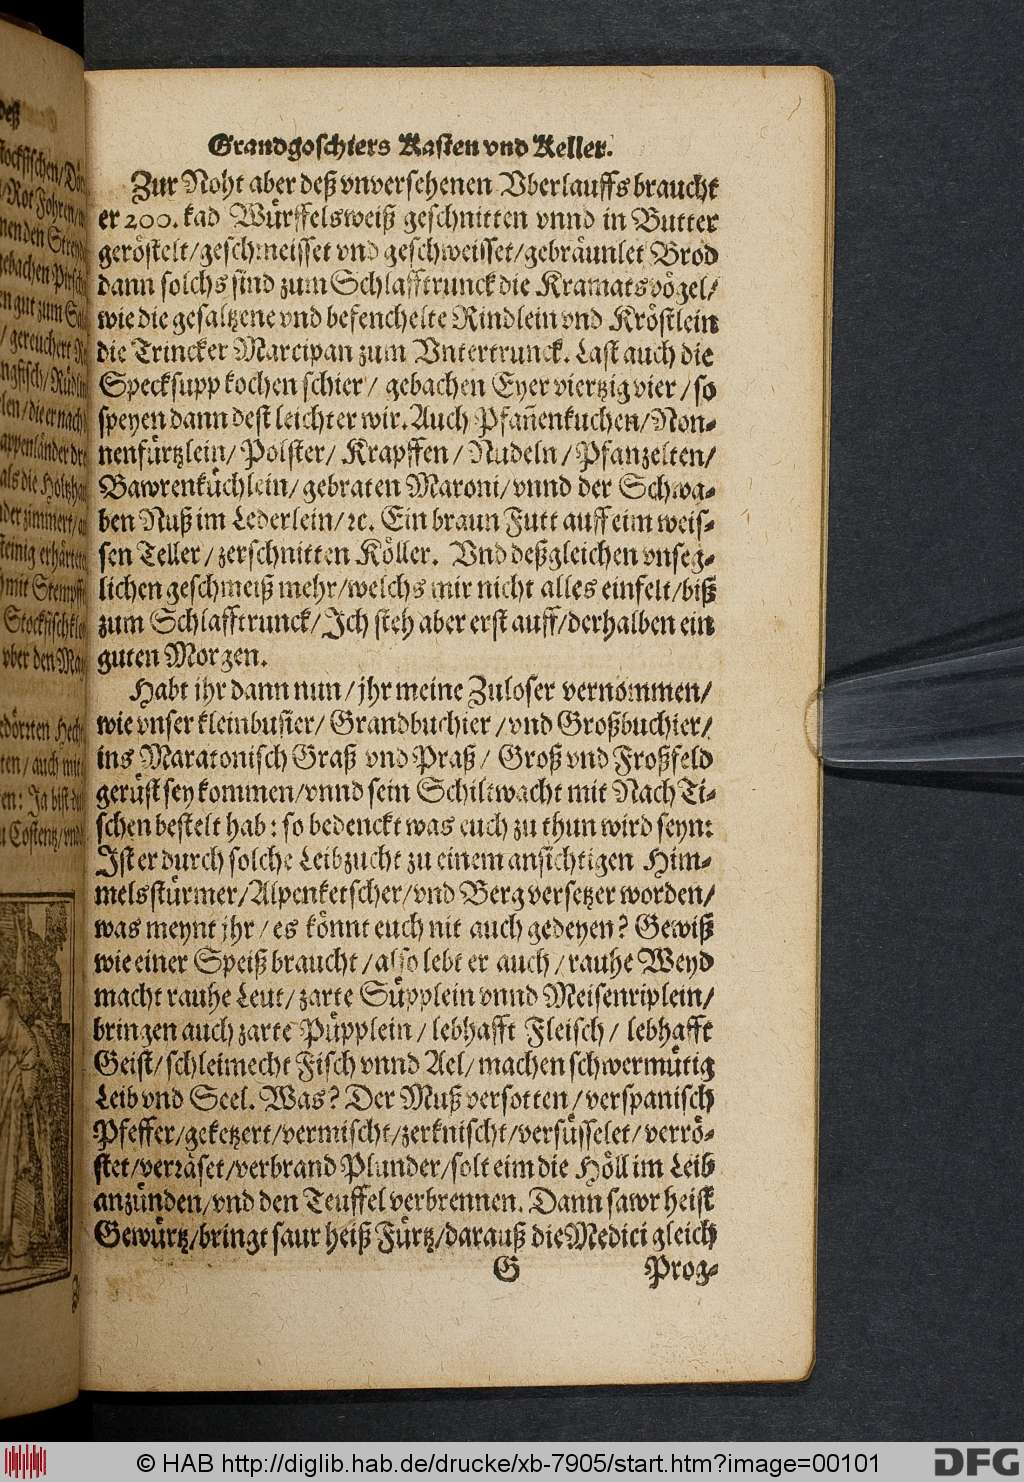 Grandgoschiers Kasten vnd Keller.
Zur Noht aber deß vnversehenen Vberlauffs braucht
er 200. kad Würffelsweiß geschnitten vnnd in Butter
geröstelt/geschmeisset vnd geschweisset/gebräunlet Brod
dann solchs sind zum Schlafftrunck die Kramatsvögel/
wie die gesaltzene vnd befenchelte Rindlein vnd Kröstlein
die Trincker Marcipan zum Vntertrunck. Last auch die
Specksupp kochen schier/ gebachen Eyer viertzig vier/so
speyen dann dest leichter wir. Auch Pfañenkuchen/Non-
nenfürtzlein/ Polster/ Krapffen/ Nudeln/ Pfanzelten/
Bawrenküchlein/ gebraten Maroni/vnnd der Schwa-
ben Nuß im Lederlein/ ꝛc. Ein braun Futt auff eim weis-
sen Teller/ zerschnitten Köller. Vnd deßgleichen vnseg-
lichen geschmeiß mehr/welchs mir nicht alles einfelt/biß
zum Schlafftrunck/Ich steh aber erst auff/derhalben ein
guten Morgen.
Habt ihr dann nun/ jhr meine Zuloser vernommen/
wie vnser kleinbusier/ Grandbuchier/vnd Großbuchier/
ins Maratonisch Graß vnd Praß/ Groß vnd Froßfeld
gerüst sey kommen/vnnd sein Schiltwacht mit Nach Ti-
schen bestelt hab: so bedenckt was euch zu thun wird seyn:
Ist er durch solche Leibzucht zu einem ansichtigen Him-
melsstürmer/Alpenketscher/vnd Berg versetzer worden/
was meynt jhr/ es könnt euch nit auch gedeyen? Gewiß
wie einer Speiß braucht/also lebt er auch/rauhe Weyd
macht rauhe Leut/ zarte Süpplein vnnd Meisenriplein/
bringen auch zarte Püpplein/ lebhafft Fleisch/ lebhafft
Geist/schleimecht Fisch vnnd Ael/machen schwermütig
Leib vnd Seel. Was? Der Muß versotten/verspanisch
Pfeffer/geketzert/vermischt/zerknischt/versüsselet/verrö-
stet/verräset/verbrand Plunder/solt eim die Höll im Leib
anzünden/vnd den Teuffel verbrennen. Dann sawr heist
Gewürtz/bringt saur heiß Fürtz/darauß die Medici gleich
G Prog-
© HAB http://diglib.hab.de/drucke/xb-7905/start.htm?image=00101
DFG